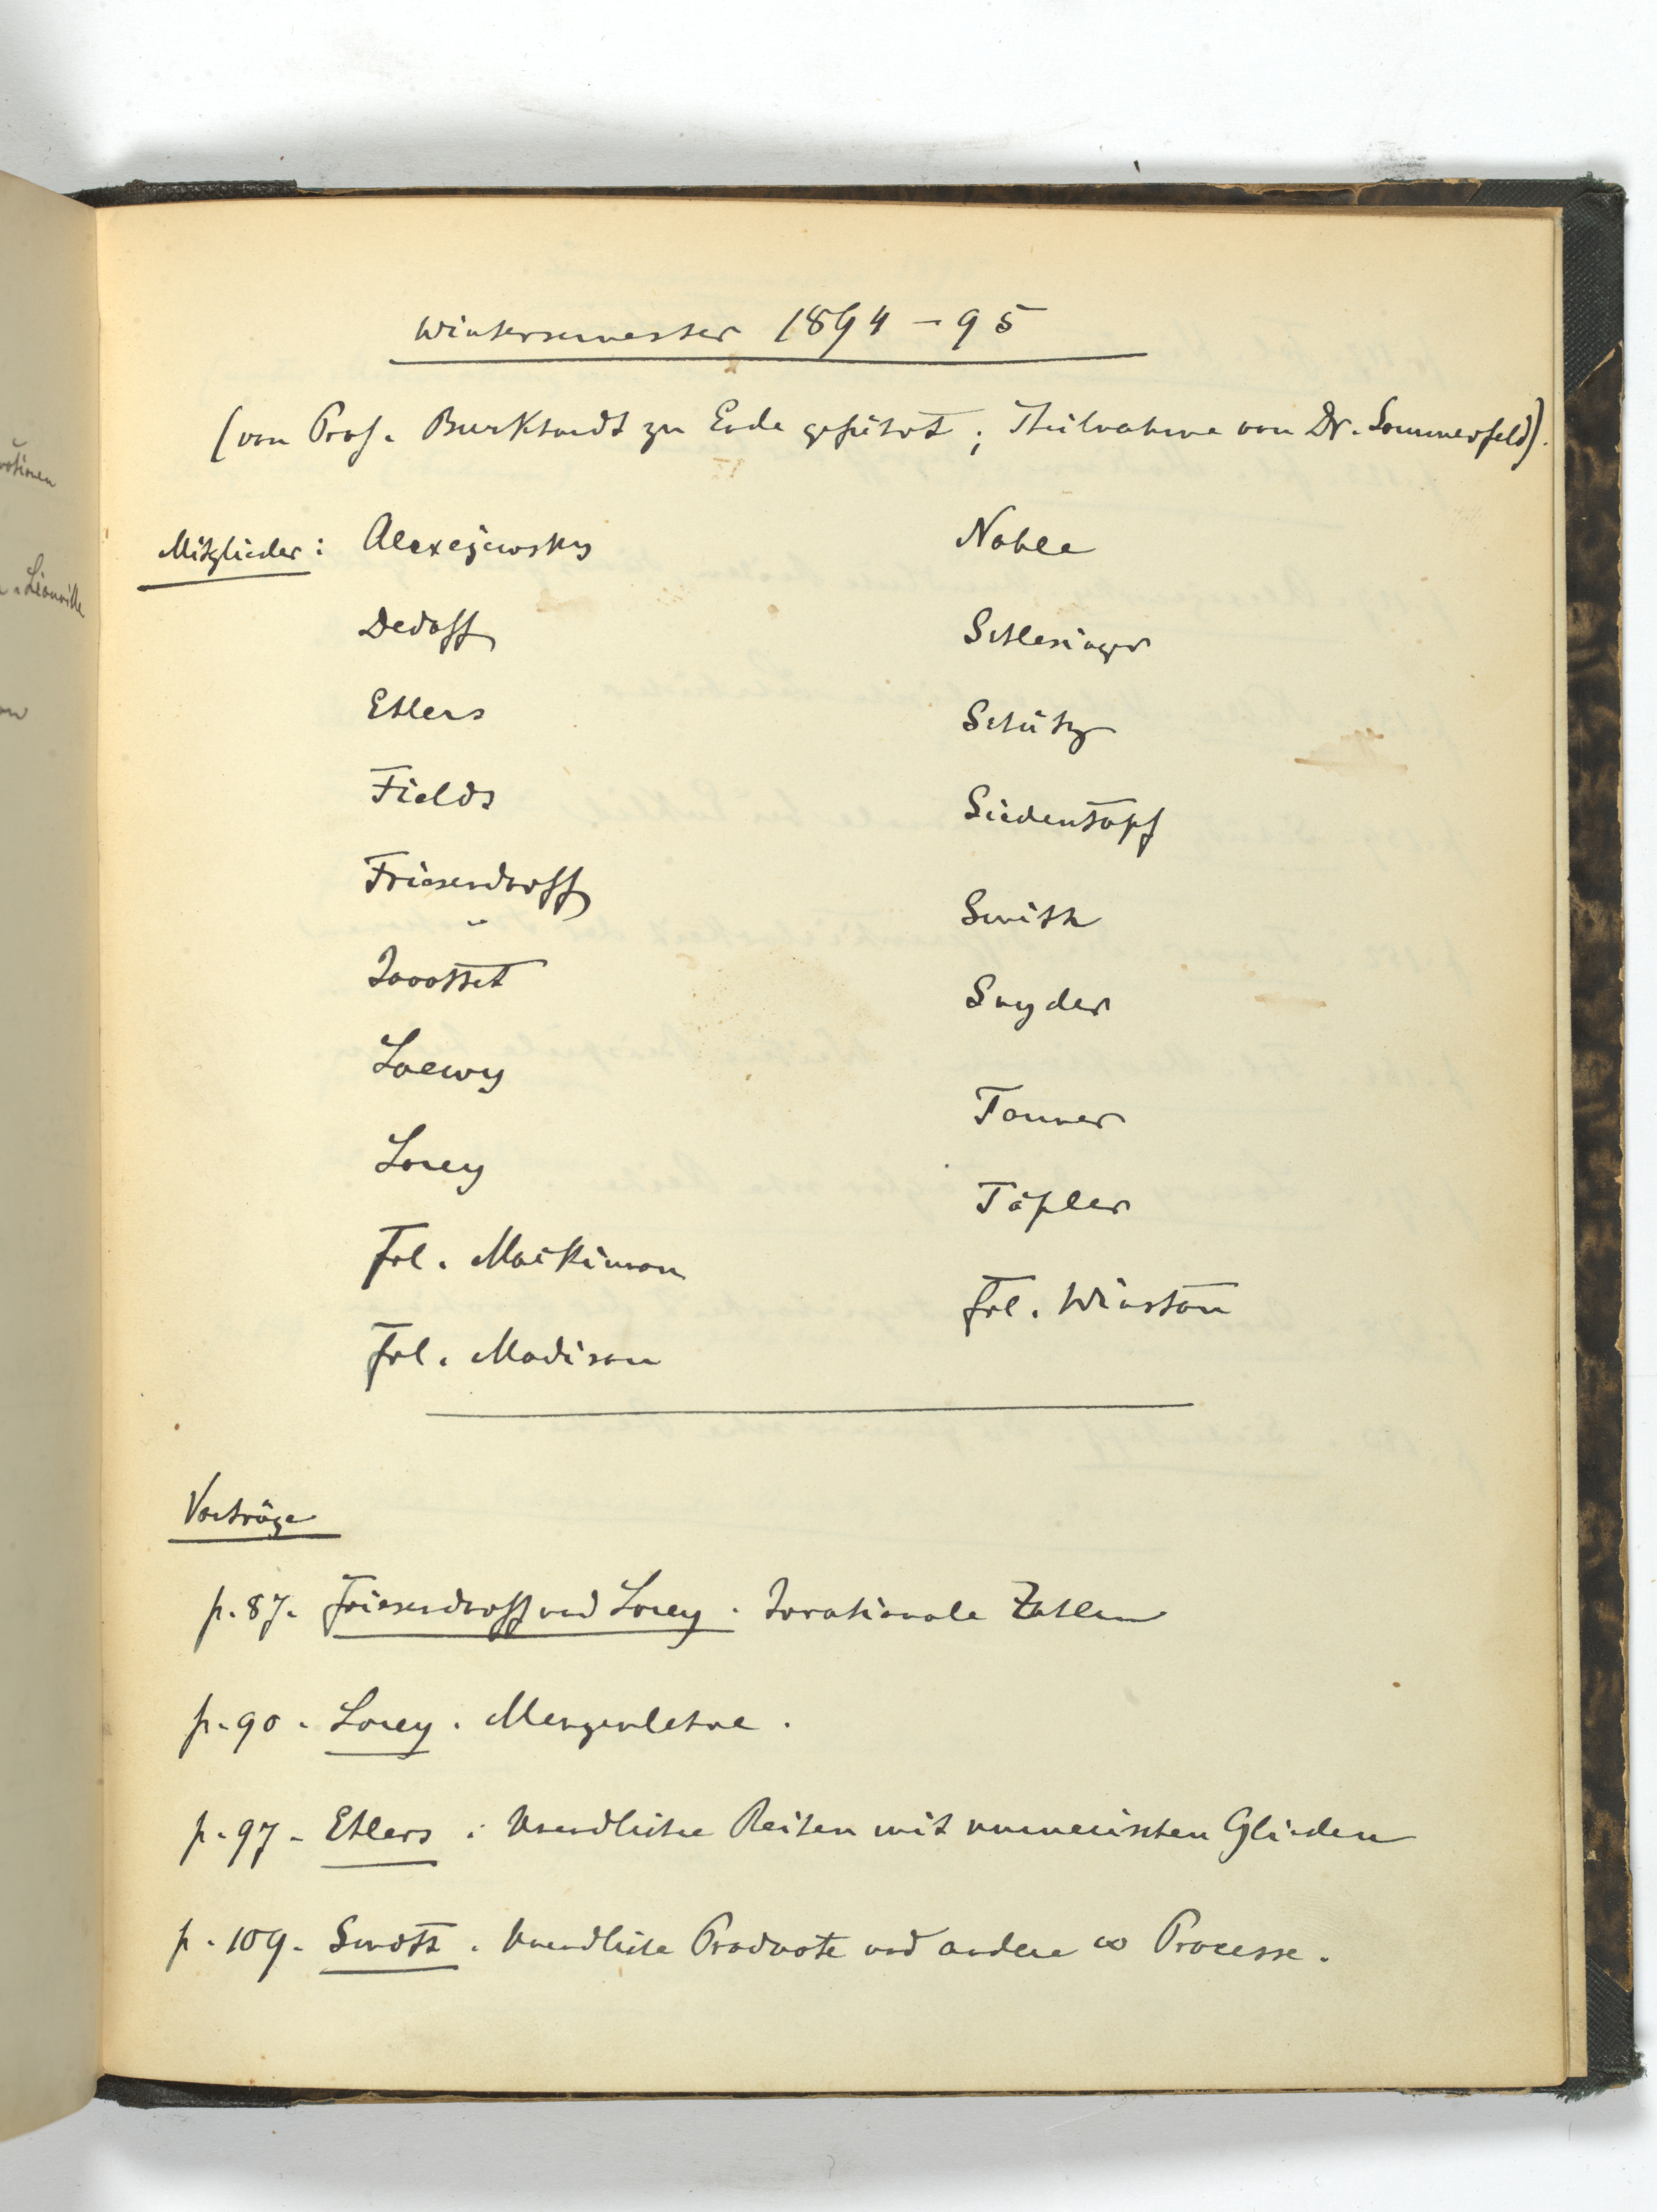 Wintersemester 1894–95
(von Prof. Burkhardt zu Ende geführt; Theilnahme von Dr. Sommerfeld).
Mitglieder: Alexejewsky
Dedoff
Ehlers
Fields
Friesendorff
Jaroffet
Loewy
Lorey
Frl. Mackinnon
Frl. Madison
Noble
Schlesinger
Schütz
Siedentopf
Smith
Snyder
Tanner
Töpler
Frl. Winston
Vorträge
p. 87. Friesendorff und Lorey. Irrationale Zahlen
p. 90. Lorey. Mengenlehre.
p. 97. Ehlers: Unendliche Reihen mit numerischen Gliedern
p. 109. Smith. Unendliche Producte und andere ∞ Processe.
Liouville